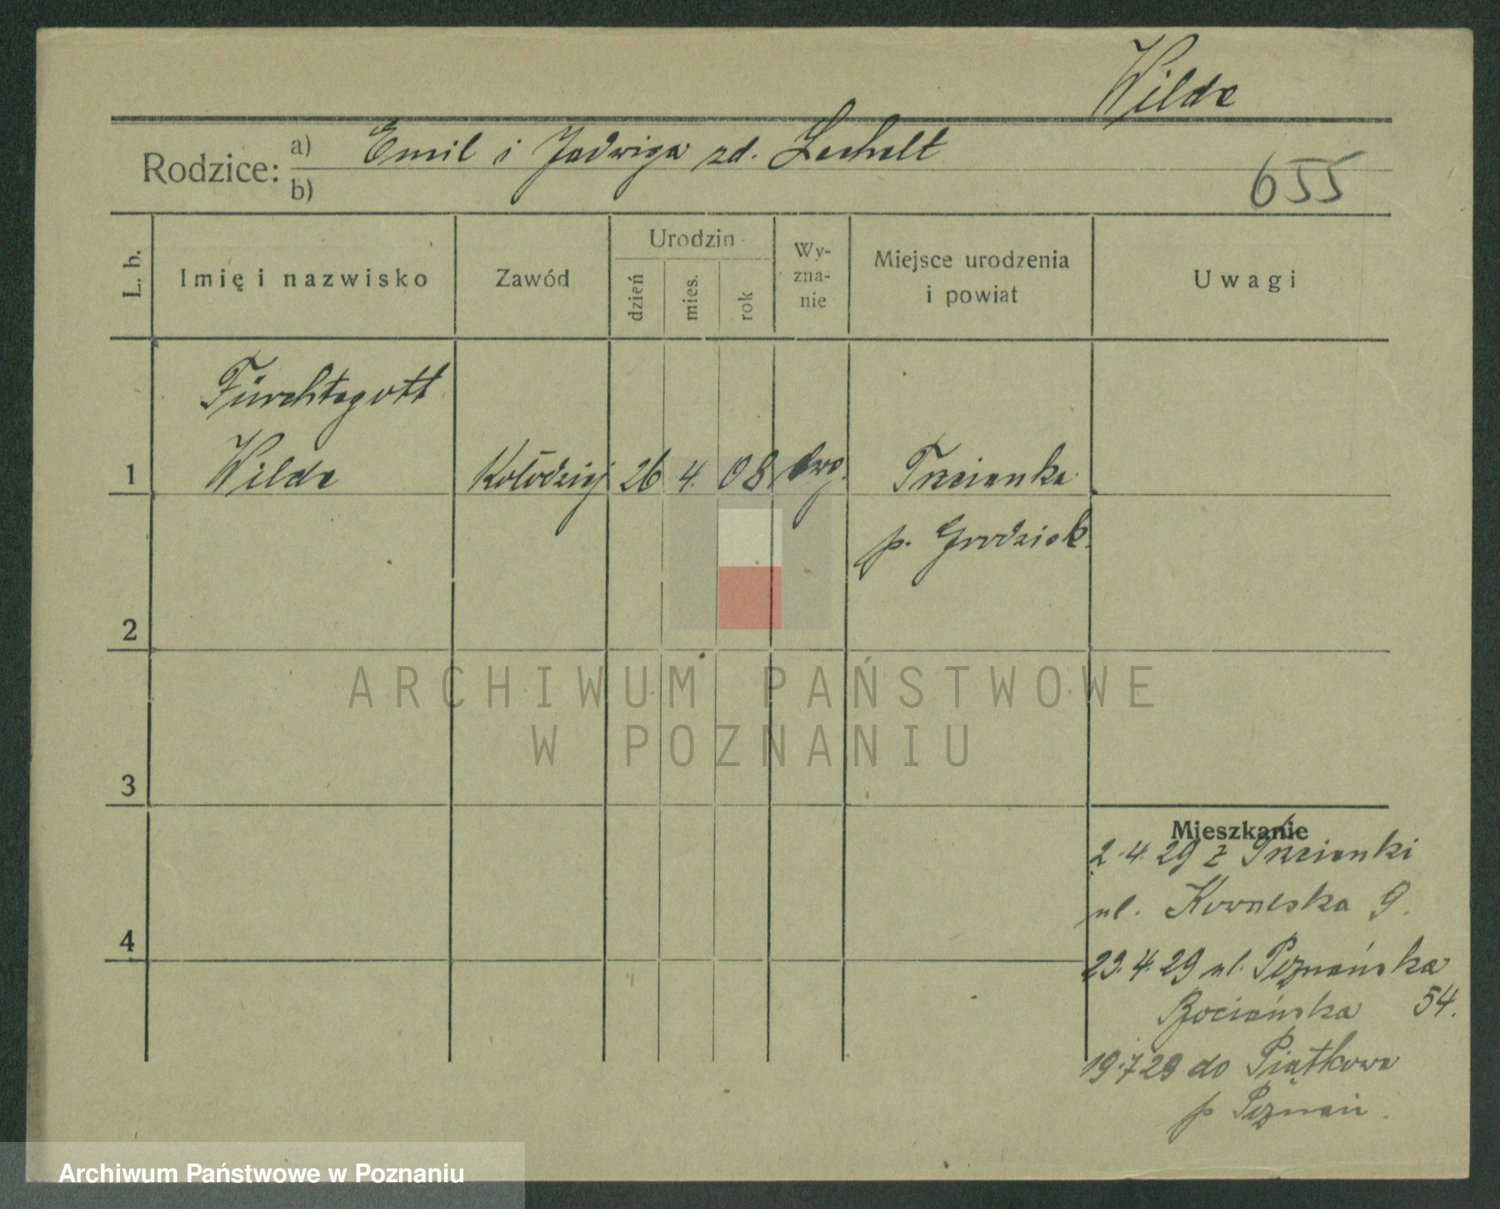 Wilde
Rodzice: a) Emil i Jadwiga zd. Lechelt
b)
655
L. b.
Imię i nazwisko
Zawód
Urodzin
dzień
mies.
rok
Wy-
zna-
nie
Miejsce urodzenia
i powiat
Uwagi
Fürchtegott
1 Wilde Kołodziej 26 4. 08 ewg. Trzcianka
p. Grodzisk.
2
ARCHIWUM PAŃSTWOWE
W POZNANIU
3
Mieszkanie
2.4.29 z Trzcianki
ul. 9.
4
23.4.29 ul. Poznańska
Bociańska 54.
19.7.29 do Piątkowa
p Poznań.
Archiwum Państwowe w Poznaniu